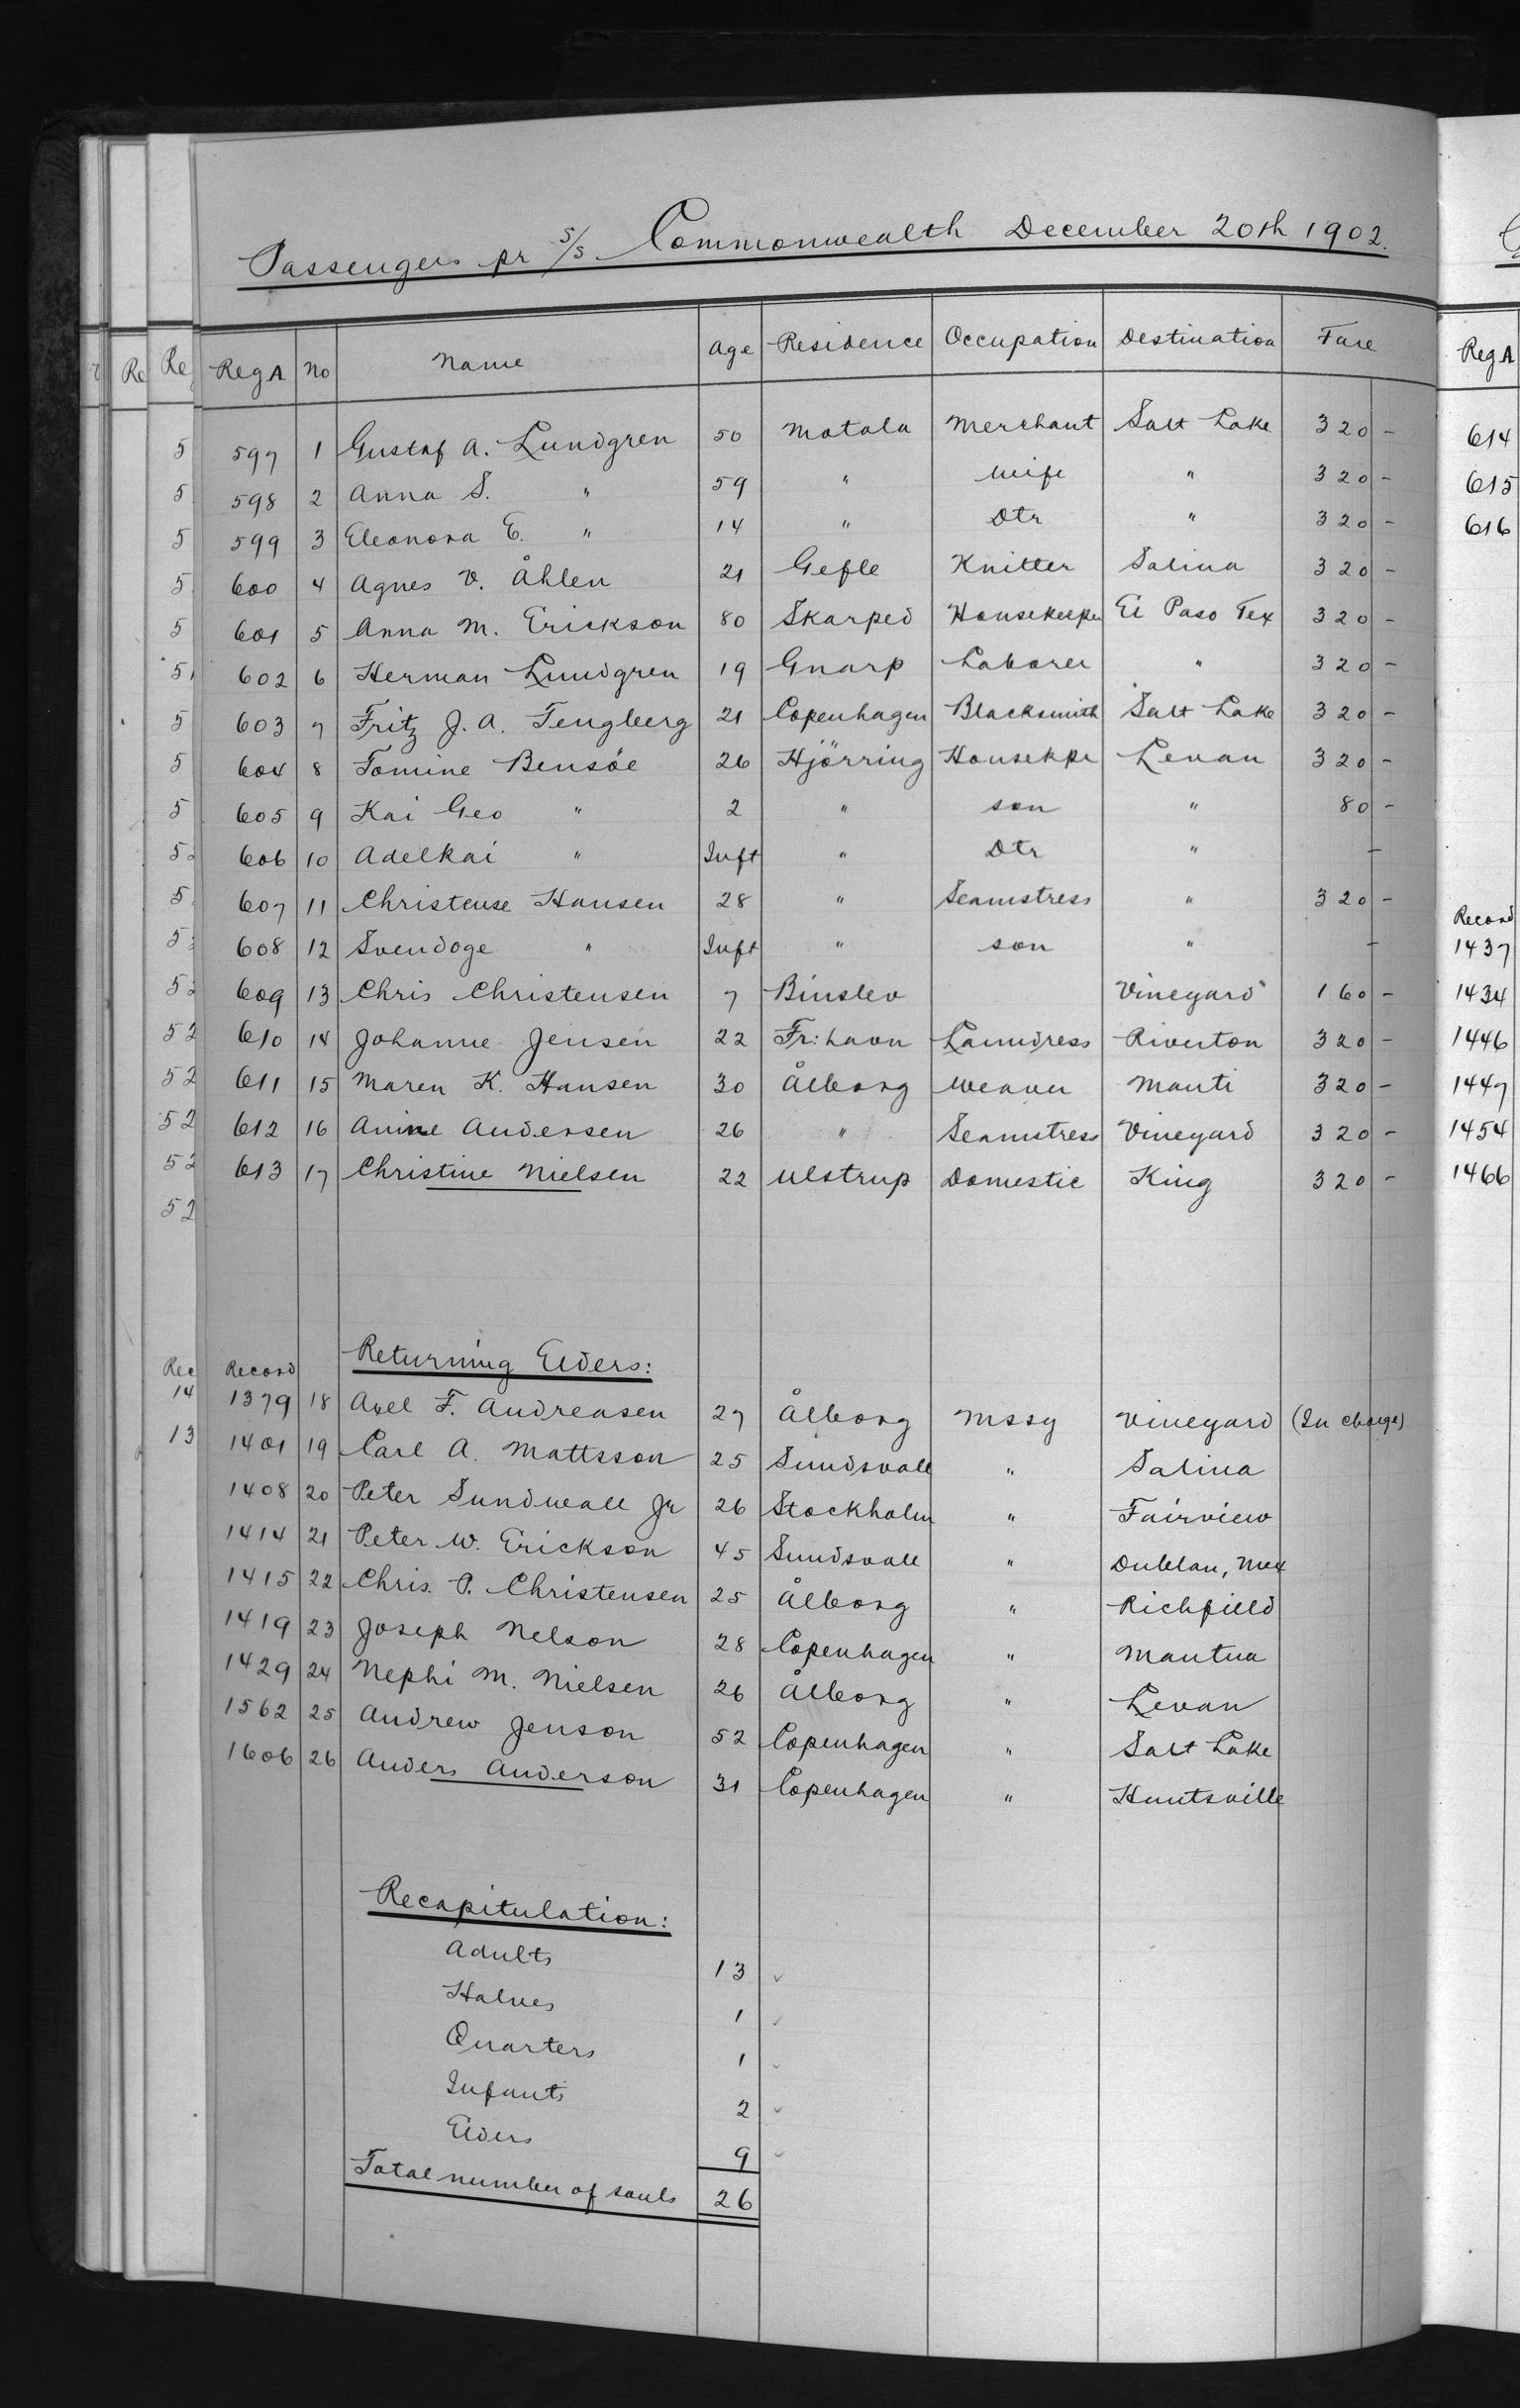 Passengers pr S/S Commonwealth December 20th 1902.
Reg A No Name Age Residence Occupation Destination Fare
597 1 Gustaf A. Lundgren 50 Motala Merchant Salt Lake 320 -
598 2 Anna S. " 59 " Wife " 320 -
599 3 Eleonora E. " 14 " Dtr " 320 -
600 4 Agnes V. Åhlen 21 Gefle Knitter Salina 320 -
601 5 Anna M. Erickson 80 Skarped Housekeeper El Paso Tex 320 -
602 6 Herman Lundgren 19 Gnarp Laborer " 320 -
603 7 Fritz J. A. Tengberg 21 Copenhagen Blacksmith Salt Lake 320 -
604 8 Tomine Bensöe 26 Hjörring Housekpr Levan 320 -
605 9 Kai Geo " 2 " son " 80 -
606 10 Adelkai " Inft " Dtr " -
607 11 Christense Hansen 28 " Seamstress " 320 -
608 12 Svendoge " Inft " son " -
609 13 Chris Christensen 7 Binslev Vineyard 160 -
610 14 Johanne Jensen 22 Fr:havn Laundress Riverton 320 -
611 15 Maren K. Hansen 30 Ålborg Weaver Manti 320 -
612 16 Anine Andersen 26 " Seamstress Vineyard 320 -
613 17 Christine Nielsen 22 Ulstrup Domestic King 320 -
Record Returning Elders:
1379 18 Axel F. Andreasen 27 Ålborg Mssy Vineyard (In charge)
1401 19 Carl A. Mattsson 25 Sundsvall " Salina
1408 20 Peter Sundwall Jr 26 Stockholm " Fairview
1414 21 Peter W. Erickson 45 Sundsvall " Dublan, Mex
1415 22 Chris. P. Christensen 25 Ålborg " Richfield
1419 23 Joseph Nelson 28 Copenhagen " Mantua
1429 24 Nephi M. Nielsen 26 Ålborg " Levan
1562 25 Andrew Jenson 52 Copenhagen " Salt Lake
1606 26 Anders Anderson 31 Copenhagen " Huntsville
Recapitulation:
Adults 13 ✓
Halves 1 ✓
Quarters 1 ✓
Infants 2 ✓
Elders 9 ✓
Total number of souls 26
Reg A
614
615
616
Record
1437
1434
1446
1447
1454
1466